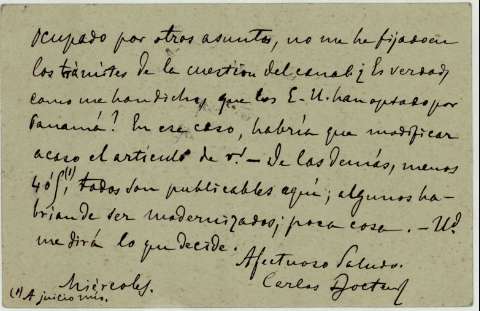 Ocupado por otros asuntos, no me he fijado en
los trámites de la cuestion del canal ¿Es verdad,
como me han dicho, que los E-U. han optado por
Panamá? En ese caso, habría que modificar
acaso el articulo de v! - De las demás, menos
4 ó 5(1), todos son publicables aquí; algunos ha-
brian de ser modernizados; poca cosa. - Ud.
me dirá lo que decide.
Afectuoso Saludo.
Miércoles. Carlos
(1) A juicio mio.